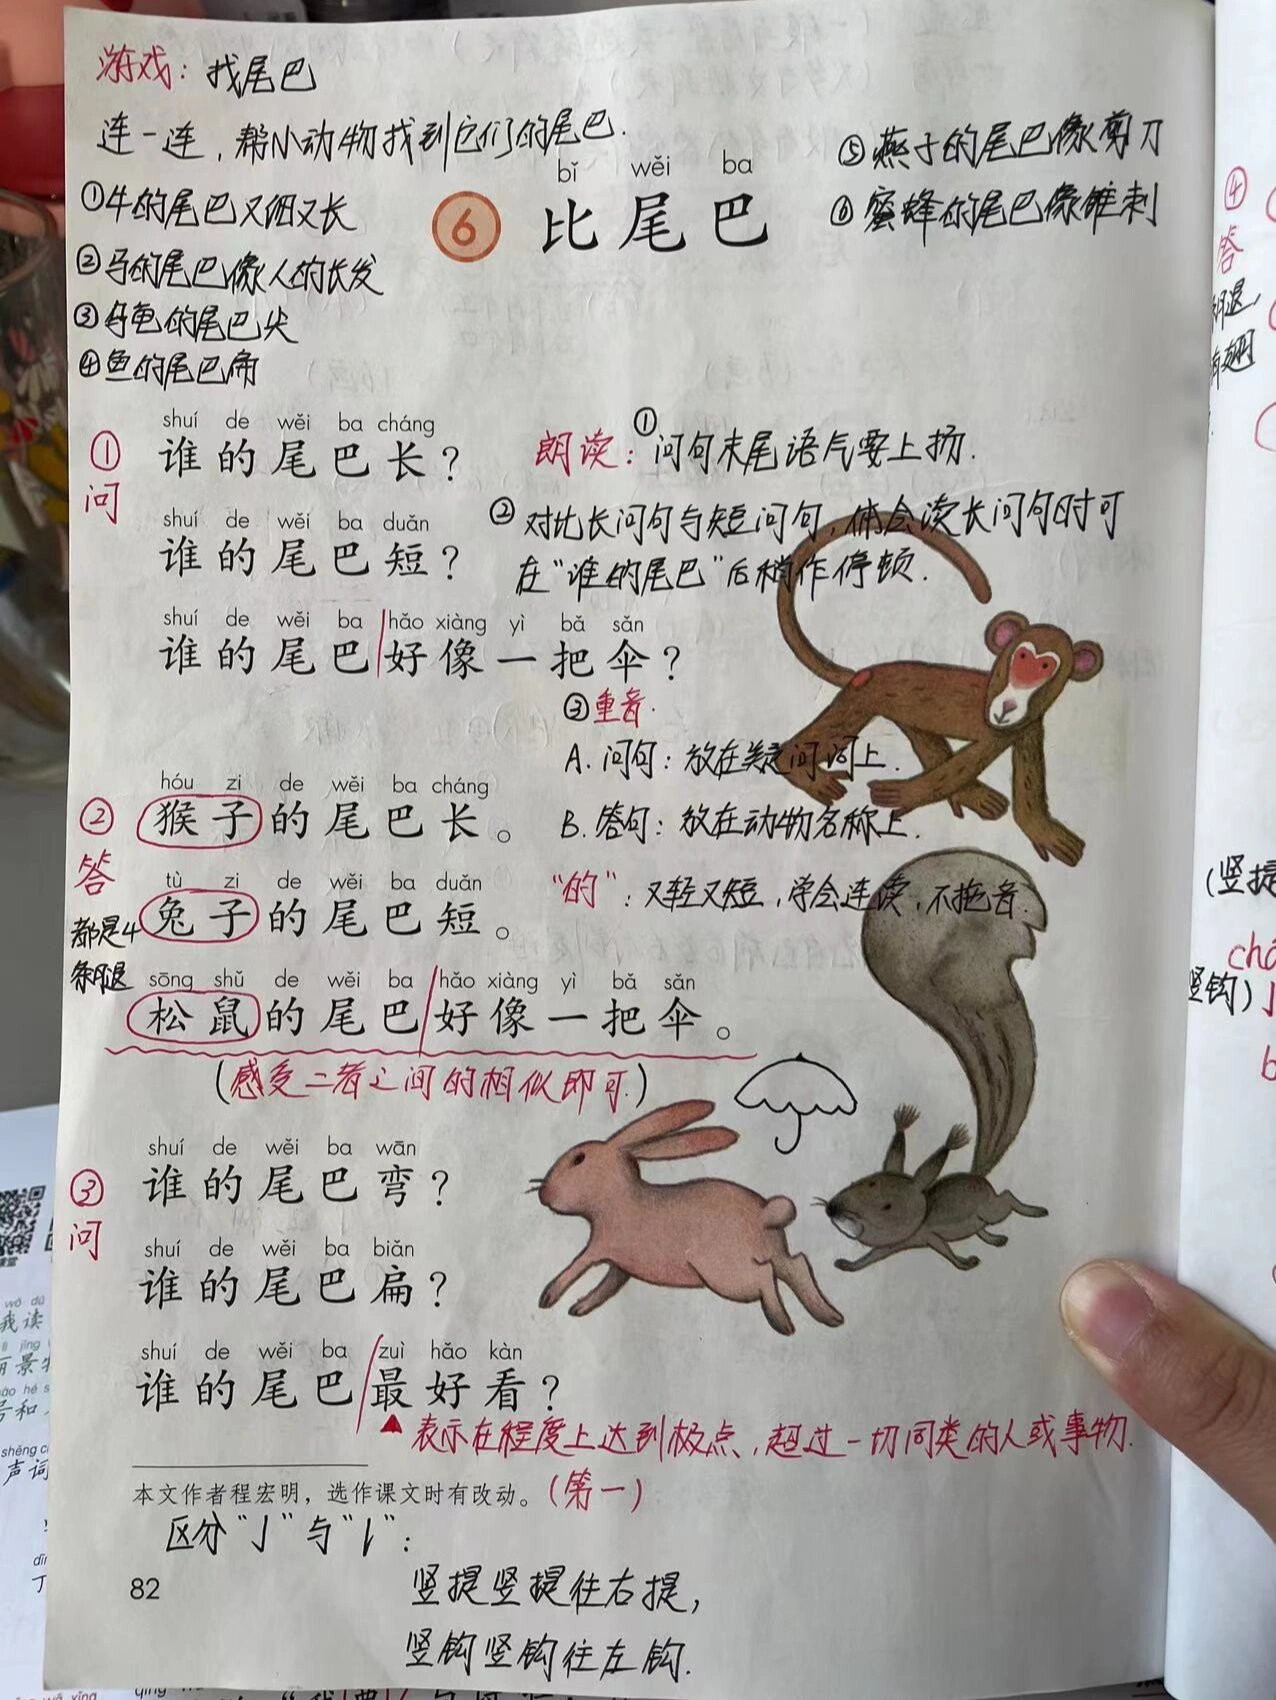 游戏：找尾巴
连一连，帮小动物找到它们的尾巴.
①牛的尾巴又细又长
②马的尾巴像人的长发
③乌龟的尾巴尖
④鱼的尾巴扁
⑤燕子的尾巴像剪刀
⑥蜜蜂的尾巴像锥刺
bǐ wěi ba
6 比尾巴
①问
shuí de wěi ba cháng
谁的尾巴长？
shuí de wěi ba duǎn
谁的尾巴短？
shuí de wěi ba hǎo xiàng yì bǎ sǎn
谁的尾巴好像一把伞？
朗读：①问句末尾语气要上扬.
②对比长问句与短问句，体会读长问句时可
在“谁的尾巴”后稍作停顿.
③重音.
A.问句：放在疑问词上.
B.答句：放在动物名称上.
“的”：又轻又短，学会连读，不拖音.
②答
都是4
条腿
hóu zi de wěi ba cháng
猴子的尾巴长。
tù zi de wěi ba duǎn
兔子的尾巴短。
sōng shǔ de wěi ba hǎo xiàng yì bǎ sǎn
松鼠的尾巴好像一把伞。
(感受二者之间的相似即可.)
③问
shuí de wěi ba wān
谁的尾巴弯？
shuí de wěi ba biǎn
谁的尾巴扁？
shuí de wěi ba zuì hǎo kàn
谁的尾巴最好看？
▲表示在程度上达到极点，超过一切同类的人或事物.
(第一)
本文作者程宏明，选作课文时有改动。
区分“亅”与“𠄌”：
竖提竖提往右提，
竖钩竖钩往左钩.
82
④
答
(竖提
竖钩)
wǒ dú
我读
jǐng
丽景
hǎo hé
号和
shēng
声词